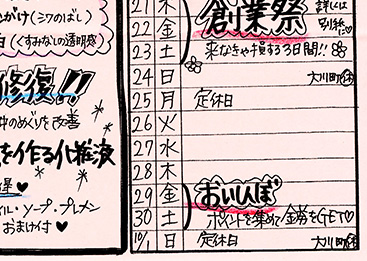 がけ(シワのばし)
白(くすみなしの透明感)
修復!!
中のめぐりを改善
を作る化粧液
イル・ソープ・プレメン
おまけ付♥
21 木 創業祭 詳しくは
22 金 別紙に♥
23 土 来なきゃ損する3日間!!
24 日 大川町㊡
25 月 定休日
26 火
27 水
28 木
29 金 おいしんぼ
30 土 ポイントを集めて金券をGET♡
10/1 日 定休日 大川町㊡